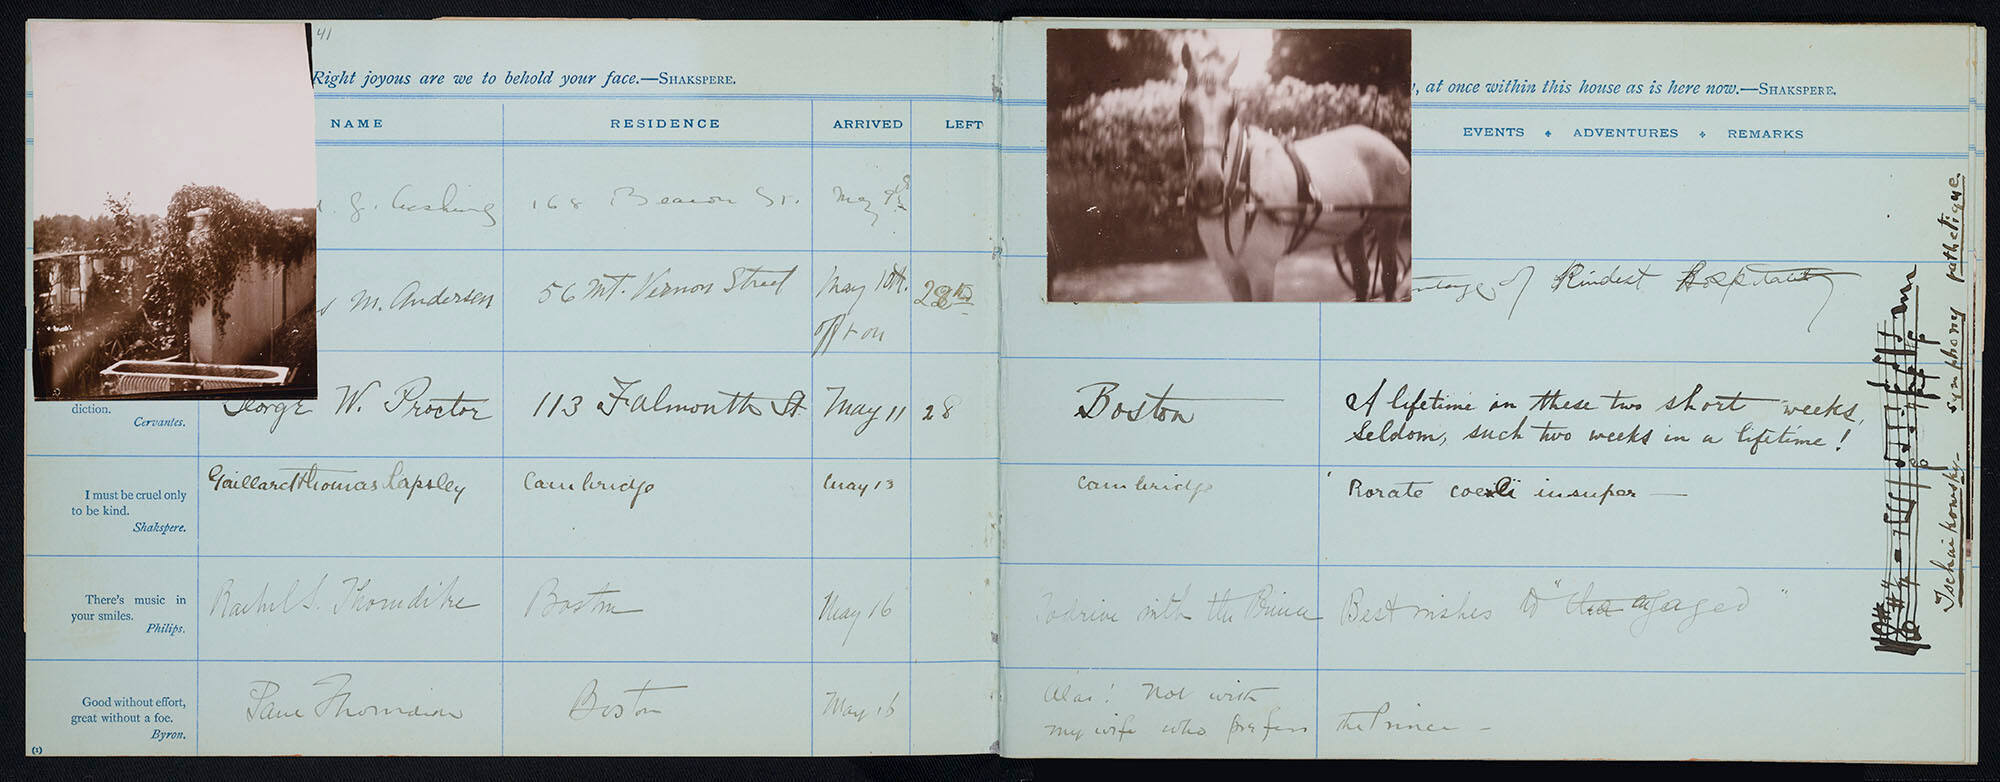 41
Right joyous are we to behold your face.—SHAKSPERE.
NAME RESIDENCE ARRIVED LEFT
J. Cushing 168 Beacon St. May
M. Anderson 56 Mt. Vernon Street May 10th. 28th
off & on
diction.
Cervantes.
George W. Proctor 113 Falmouth St. May 11 28
I must be cruel only
to be kind.
Shakspere.
Gaillard Thomas Lapsley Cambridge May 13
There's music in
your smiles.
Philips.
Rachel S. Thorndike Boston May 16
Good without effort,
great without a foe.
Byron.
Paul Thorndike Boston May 16
(1)
, at once within this house as is here now.—SHAKSPERE.
EVENTS ✦ ADVENTURES ✦ REMARKS
of Kindest Hospitality
Boston A lifetime in these two short weeks,
Seldom, such two weeks in a lifetime!
Cambridge "Rorate coeli insuper —
To drive with the Prince Best wishes to "the engaged"
Alas! Not with
my wife who prefers the Prince —
Tschaikowsky - symphony pathetique.